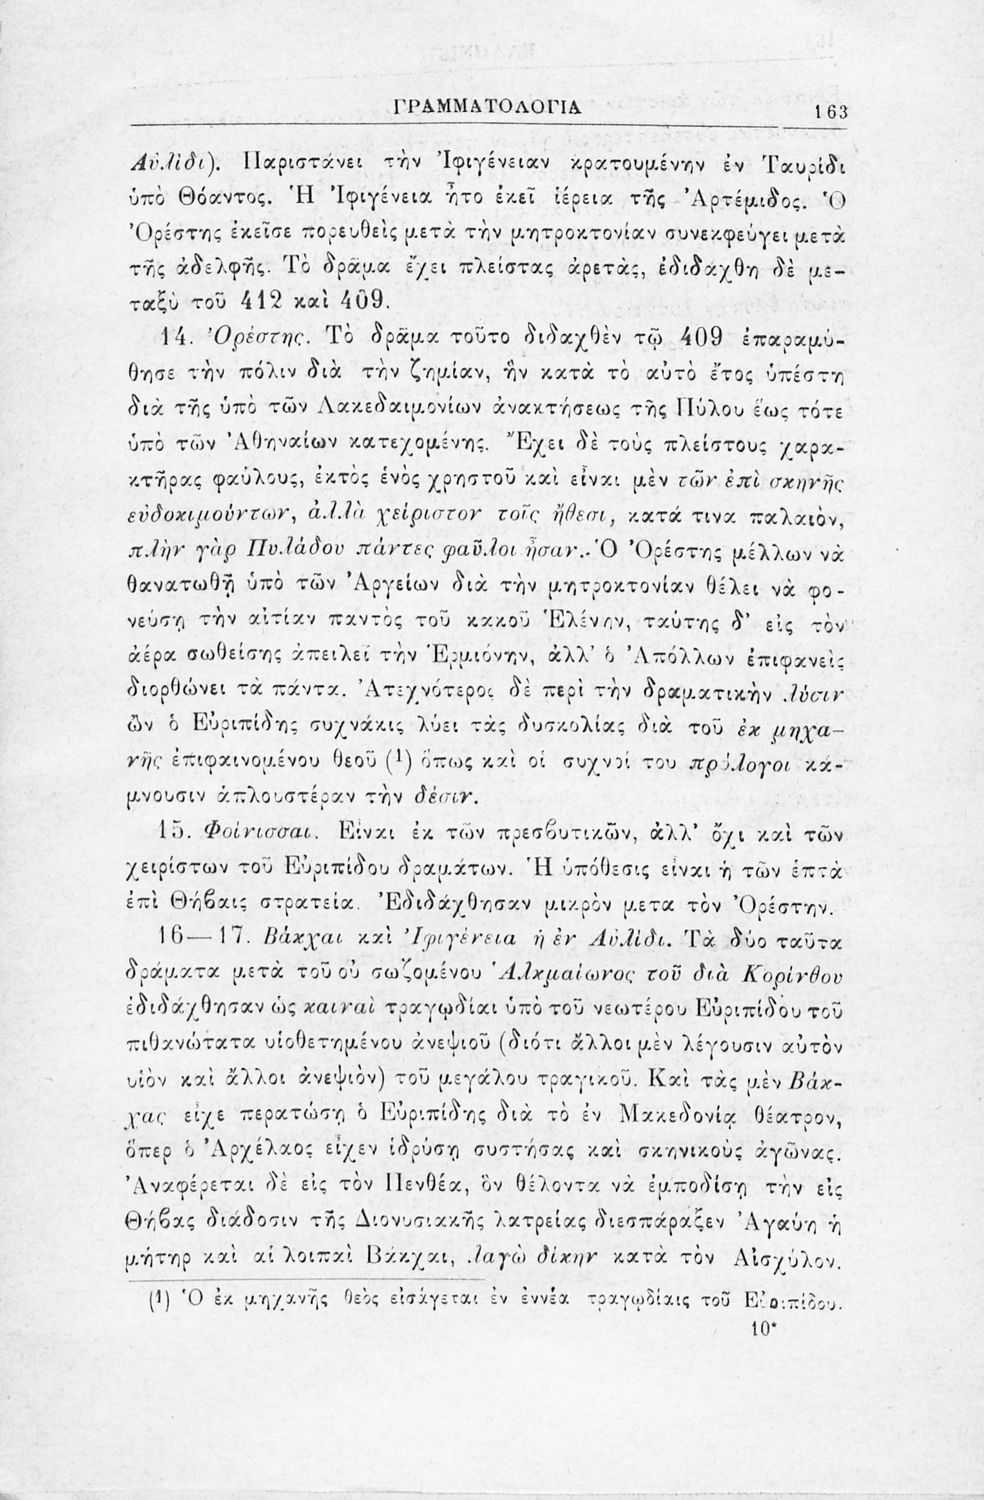 ΓΡΑΜΜΑΤΟΛΟΓΙΑ 163
Αὐλίδι). Παριστάνει τὴν Ἰφιγένειαν κρατουμένην ἐν Ταυρίδι
ὑπὸ Θόαντος. Ἡ Ἰφιγένεια ἦτο ἐκεῖ ἱέρεια τῆς Ἀρτέμιδος. Ὁ
Ὀρέστης ἐκεῖσε πορευθεὶς μετὰ τὴν μητροκτονίαν συνεκφεύγει μετὰ
τῆς ἀδελφῆς. Τὸ δρᾶμα ἔχει πλείστας ἀρετὰς, ἐδιδάχθη δὲ με-
ταξὺ τοῦ 412 καὶ 409.
14. Ὀρέστης. Τὸ δρᾶμα τοῦτο διδαχθὲν τῷ 409 ἐπαραμύ-
θησε τὴν πόλιν διὰ τὴν ζημίαν, ἣν κατὰ τὸ αὐτὸ ἔτος ὑπέστη
διὰ τῆς ὑπὸ τῶν Λακεδαιμονίων ἀνακτήσεως τῆς Πύλου ἕως τότε
ὑπὸ τῶν Ἀθηναίων κατεχομένης. Ἔχει δὲ τοὺς πλείστους χαρα-
κτῆρας φαύλους, ἐκτὸς ἑνὸς χρηστοῦ καὶ εἶναι μὲν τῶν ἐπὶ σκηνῆς
εὐδοκιμούντων, ἀλλὰ χείριστον τοῖς ἤθεσι, κατά τινα παλαιὸν,
πλὴν γὰρ Πυλάδου πάντες φαῦλοι ἦσαν.. Ὁ Ὀρέστης μέλλων νὰ
θανατωθῇ ὑπὸ τῶν Ἀργείων διὰ τὴν μητροκτονίαν θέλει νὰ φο-
νεύσῃ τὴν αἰτίαν παντὸς τοῦ κακοῦ Ἑλένην, ταύτης δ’ εἰς τὸν
ἀέρα σωθείσης ἀπειλεῖ τὴν Ἑρμιόνην, ἀλλ’ ὁ Ἀπόλλων ἐπιφανεὶς
διορθώνει τὰ πάντα. Ἀτεχνότερος δὲ περὶ τὴν δραματικὴν λύσιν
ὢν ὁ Εὐριπίδης συχνάκις λύει τὰς δυσκολίας διὰ τοῦ ἐκ μηχα-
νῆς ἐπιφαινομένου θεοῦ (1) ὅπως καὶ οἱ συχνοί του πρόλογοι κά-
μνουσιν ἁπλουστέραν τὴν δέσιν.
15. Φοίνισσαι. Εἶναι ἐκ τῶν πρεσβυτικῶν, ἀλλ’ ὄχι καὶ τῶν
χειρίστων τοῦ Εὐριπίδου δραμάτων. Ἡ ὑπόθεσις εἶναι ἡ τῶν ἑπτὰ
ἐπὶ Θήβαις στρατεία. Ἐδιδάχθησαν μικρὸν μετα τὸν Ὀρέστην.
16—17. Βάκχαι καὶ Ἰφιγένεια ἡ ἐν Αὐλίδι. Τὰ δύο ταῦτα
δράματα μετὰ τοῦ οὐ σωζομένου Ἀλκμαίωνος τοῦ διὰ Κορίνθου
ἐδιδάχθησαν ὡς καιναὶ τραγῳδίαι ὑπὸ τοῦ νεωτέρου Εὐριπίδου τοῦ
πιθανώτατα υἱοθετημένου ἀνεψιοῦ (διότι ἄλλοι μὲν λέγουσιν αὐτὸν
υἱὸν καὶ ἄλλοι ἀνεψιὸν) τοῦ μεγάλου τραγικοῦ. Καὶ τὰς μὲν Βάκ-
χας εἶχε περατώσῃ ὁ Εὐριπίδης διὰ τὸ ἐν Μακεδονίᾳ θέατρον,
ὅπερ ὁ Ἀρχέλαος εἶχεν ἱδρύσῃ συστήσας καὶ σκηνικοὺς ἀγῶνας.
Ἀναφέρεται δὲ εἰς τὸν Πενθέα, ὃν θέλοντα νὰ ἐμποδίσῃ τὴν εἰς
Θήβας διάδοσιν τῆς Διονυσιακῆς λατρείας διεσπάραξεν Ἀγαύη ἡ
μήτηρ καὶ αἱ λοιπαὶ Βάκχαι, λαγὼ δίκην κατὰ τὸν Αἰσχύλον.
(1) Ὁ ἐκ μηχανῆς θεὸς εἰσάγεται ἐν ἐννέα τραγῳδίαις τοῦ Εὐριπίδου.
10*